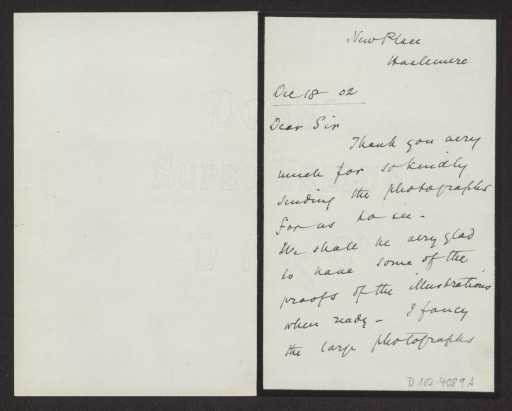 New Place
Haslemere
Dec 18 02
Dear Sir
Thank you very
much for so kindly
sending the photographs
for us to see.
We shall be very glad
to have some of the
proofs of the illustrations
when ready - I fancy
the large photographs
D 102-4089A